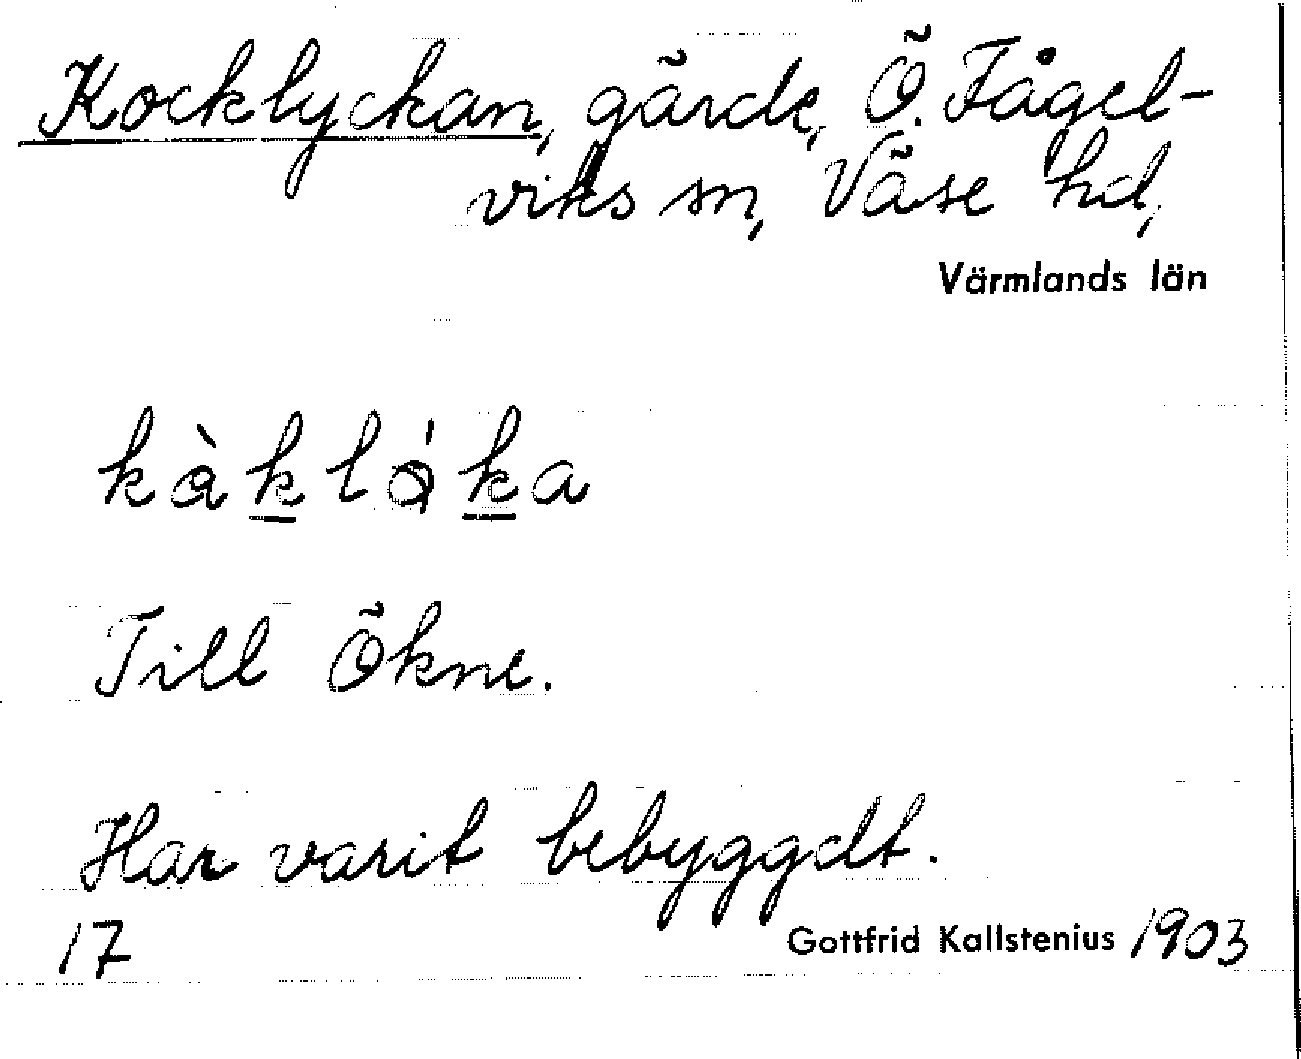 Kocklyckan, gärde, Ö. Fågel-
viks sn, Väse hd,
Värmlands län
kàkláka
Till Ökne.
Har varit bebyggdt.
17
Gottfrid Kallstenius 1903